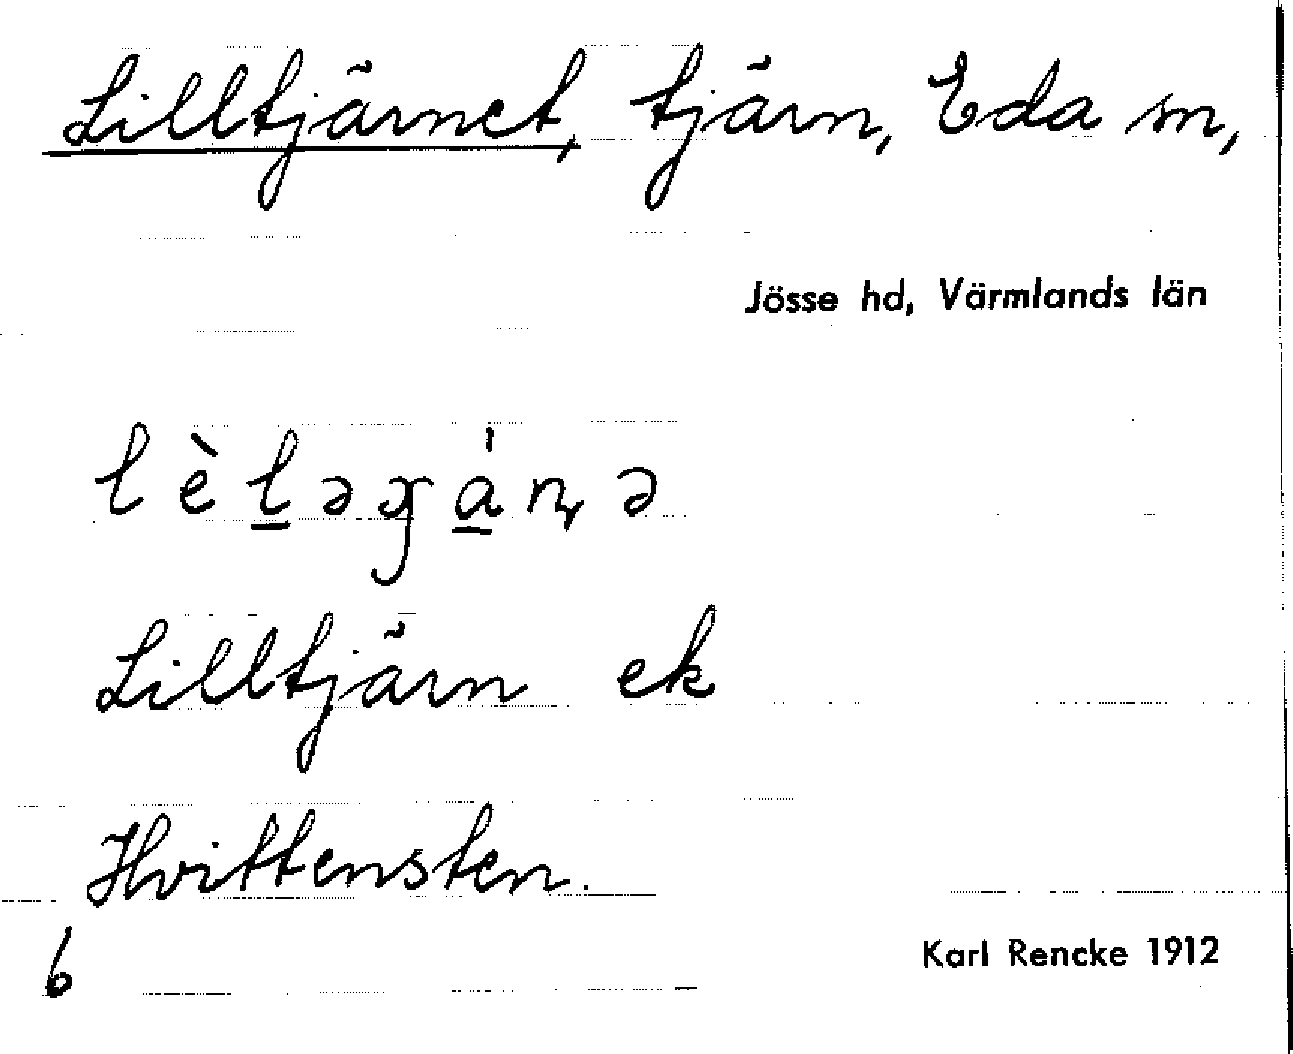 Lilltjärnet, tjärn, Eda sn,
Jösse hd, Värmlands län
Lilltjärn ek
Hvittensten.
6
Karl Rencke 1912